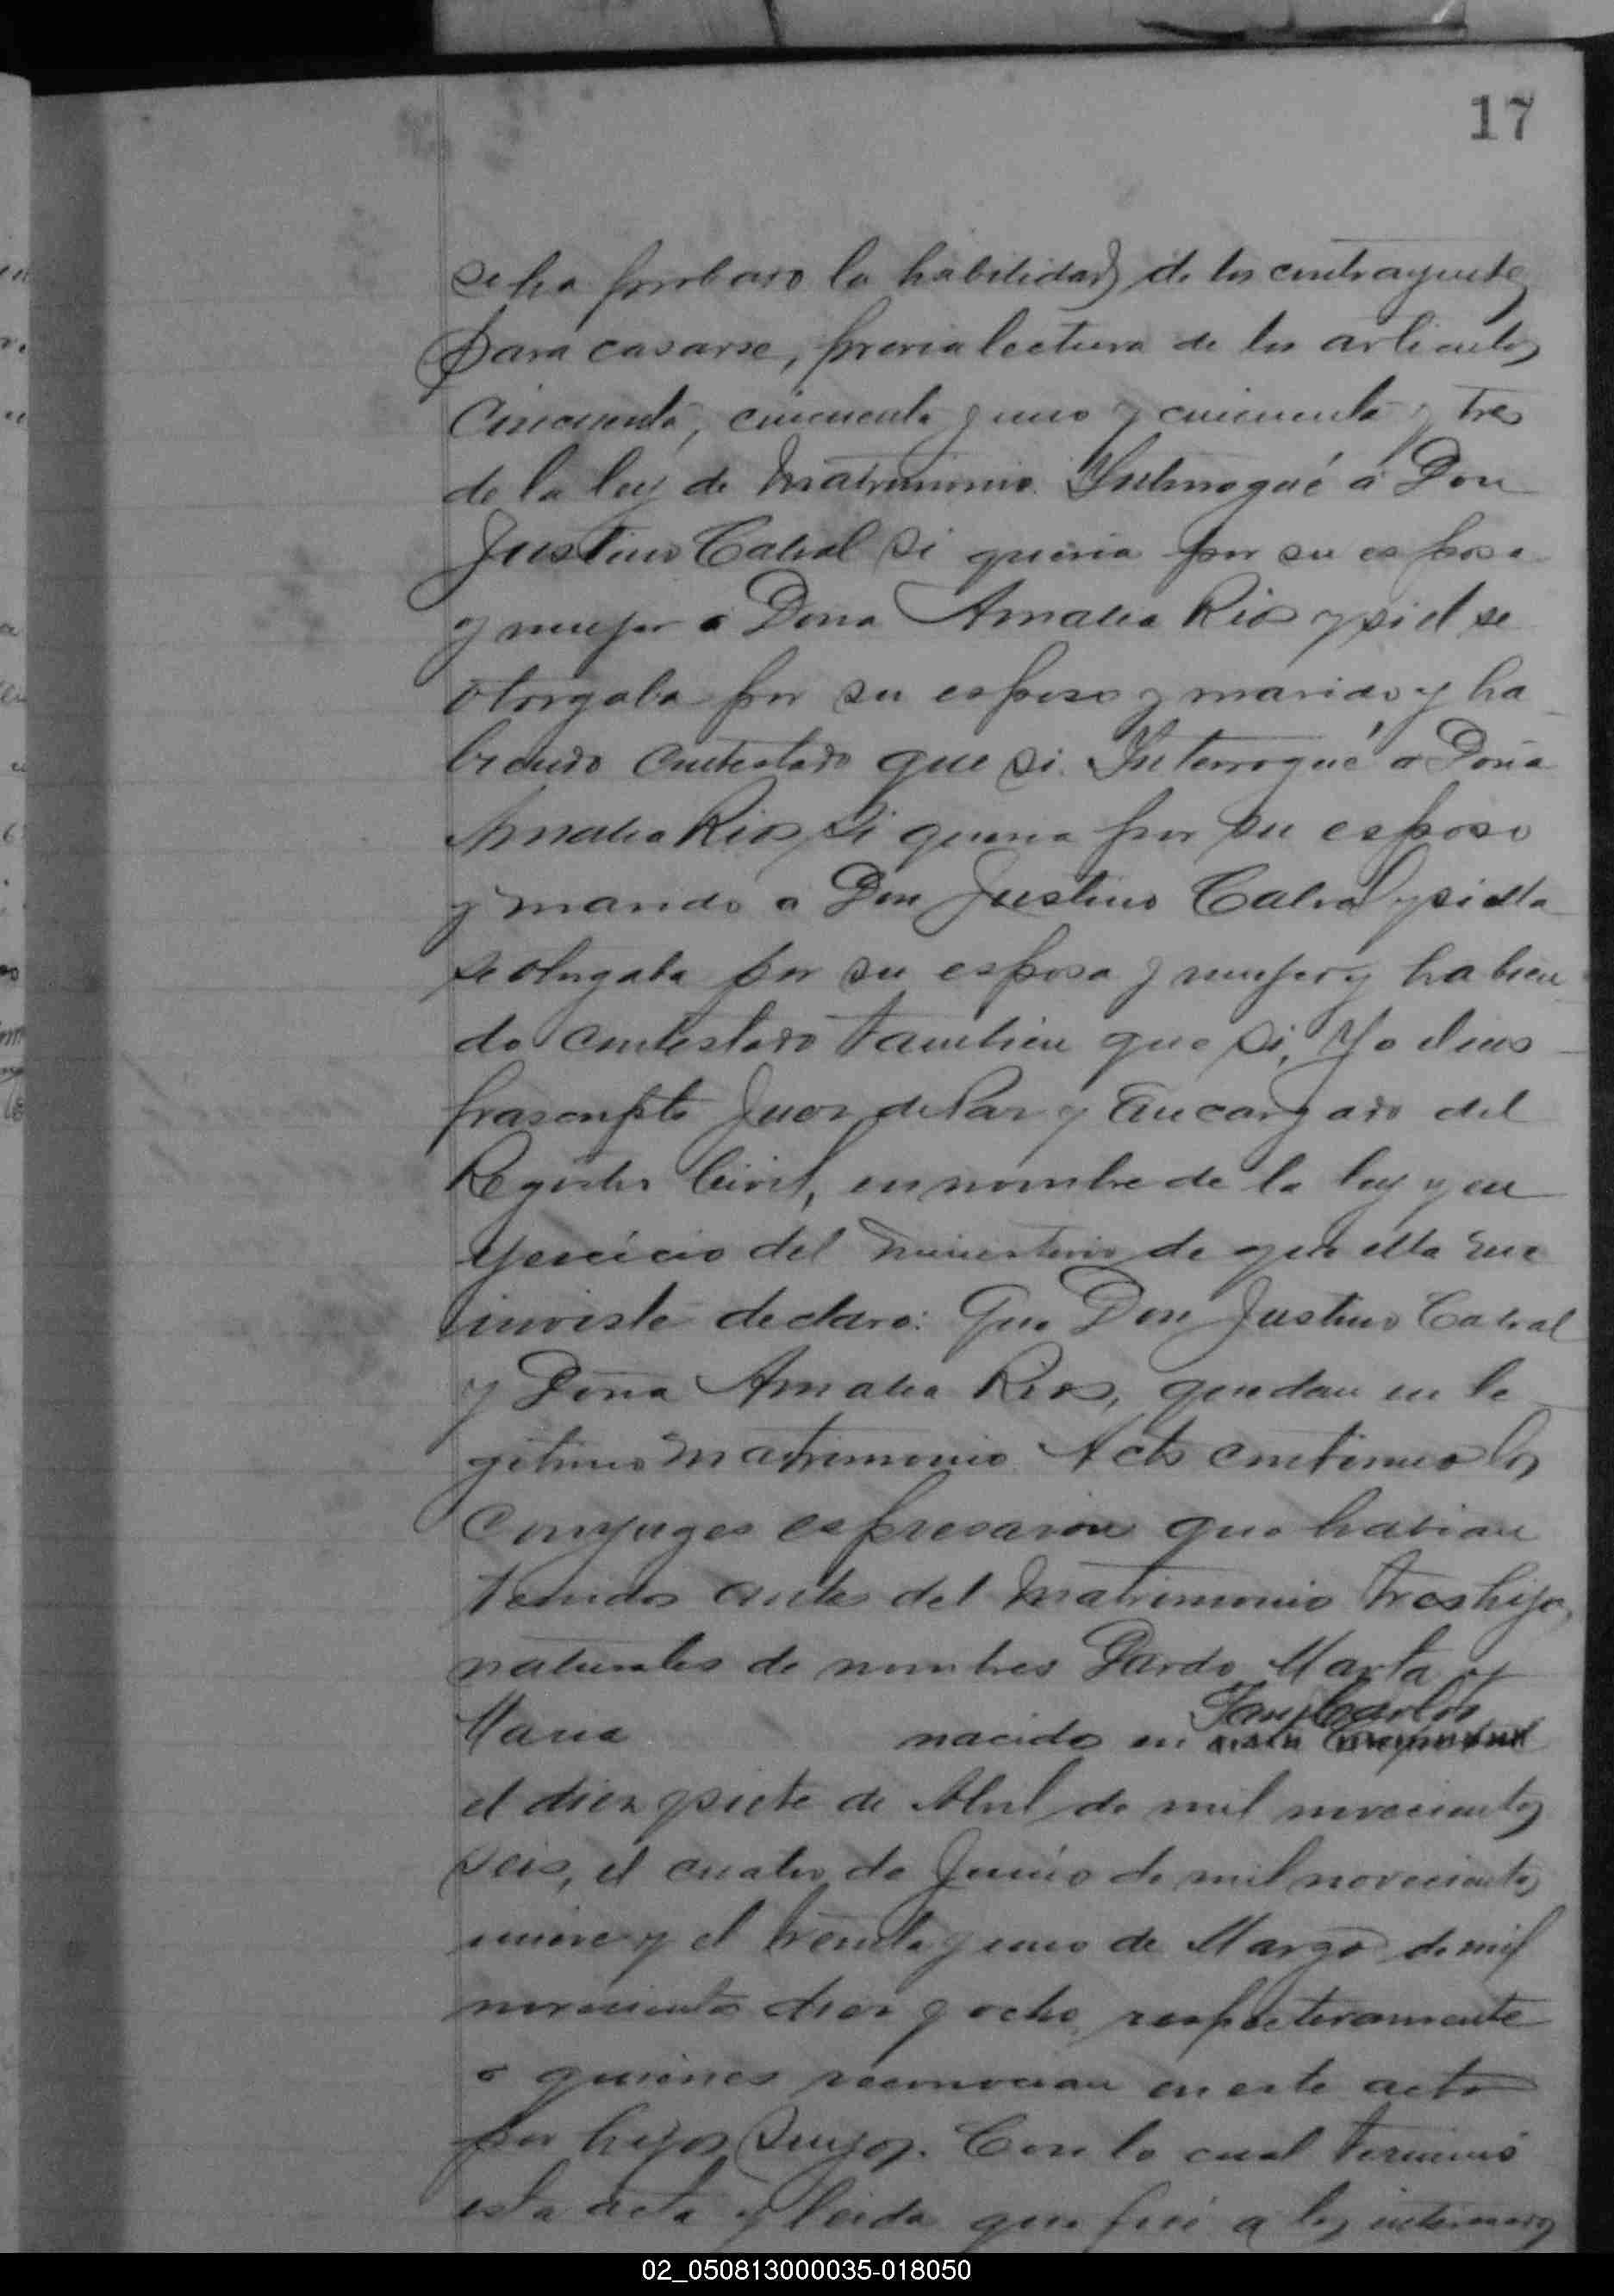 17
se ha probado la habilidad de los contrayentes
para casarse, previa lectura de los articulos
Cincuenta, cincuenta y uno y cincuenta y tres
de la ley de Matrimonio. Interrogué á Don
Justino Cabral si queria por su esposa
y mujer a Doña Amalia Rios y si el se
otorgaba por su esposo y marido y ha
biendo contestado que si. Interrogué a Doña
Amalia Rios si queria por su esposo
y marido a Don Justino Cabral y si ella
se otorgaba por su esposa y mujer y habien
do contestado tambien que si, Yo el ins
frascripto Juez de Paz y Encargado del
Registro Civil, en nombre de la ley y en
ejercicio del ministerio de que ella me
inviste declaro: Que Don Justino Cabral
y Doña Amalia Rios, quedan en le
gitimo matrimonio Acto continuo los
Conyuges espresaron que habian
tenidos antes del Matrimonio tres hijos
naturales de nombres Pardo Marta y
San Carlos
Maria nacidos en
el diez y siete de Abril de mil novecientos
seis, el cuatro de Junio de mil novecientos
nueve y el treinta y uno de Marzo de mil
novecientos diez y ocho, respectivamente
a quienes reconocian en este acto
por hijos suyos. Con lo cual terminó
esta acta y leida que fué a los
02_050813000035-018050